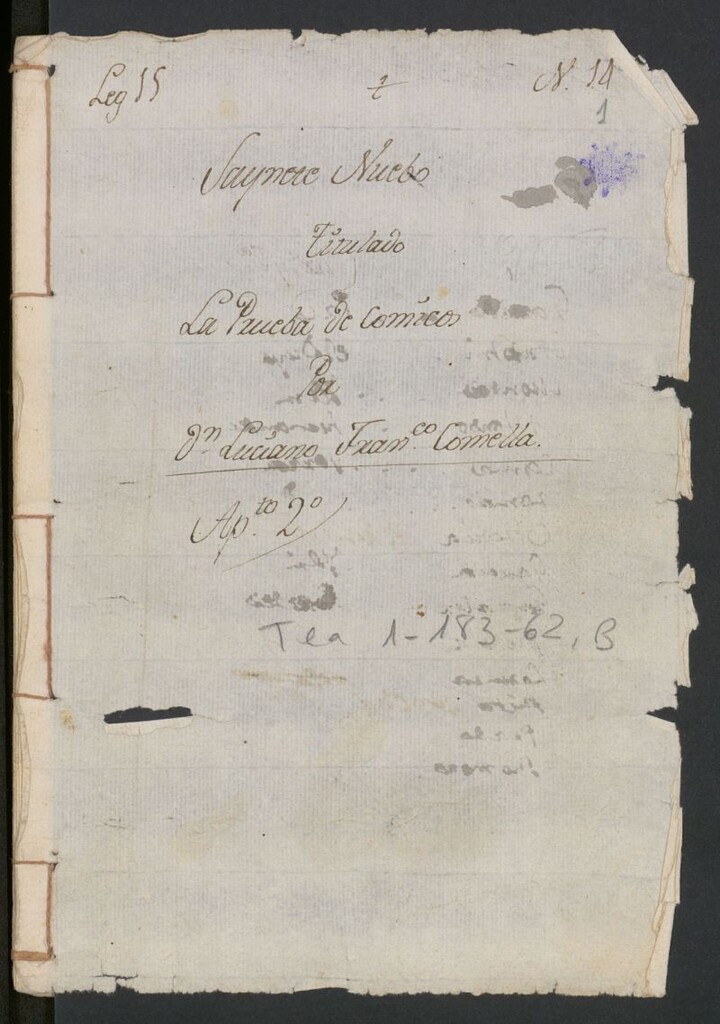 Leg 15 + N. 14
1
Saynete Nuebo
Titulado
La Prueba de Comicos
Por
Dn Luciano Franco Comella.
Apto 2o
Tea 1-183-62, B